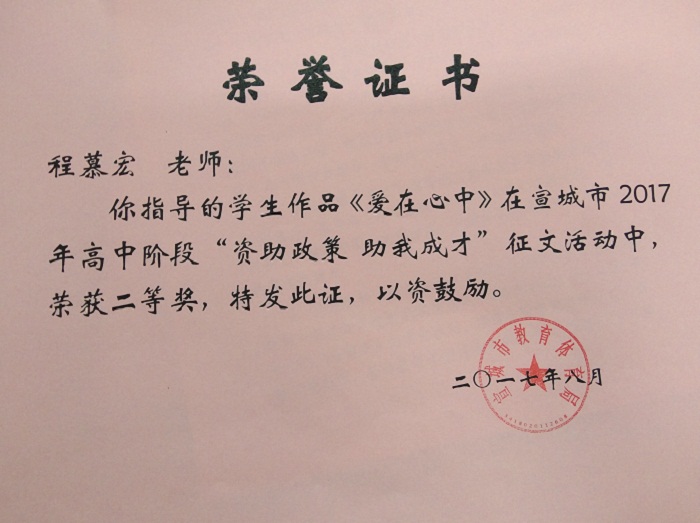 荣誉证书
程慕宏 老师：
你指导的学生作品《爱在心中》在宣城市2017
年高中阶段“资助政策 助我成才”征文活动中，
荣获二等奖，特发此证，以资鼓励。
宣城市教育体育局
二〇一七年八月